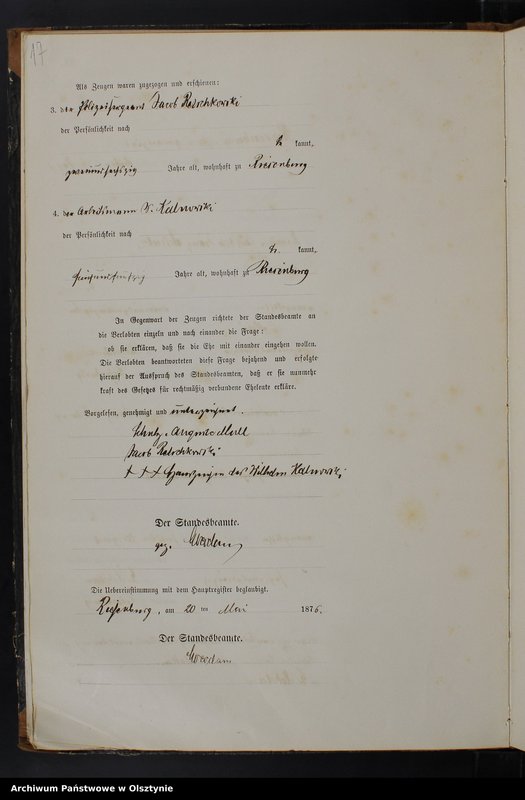 17
Als Zeugen waren zugezogen und erschienen:
3. der Polizeisergeant Jacob Ratschkowski
der Persönlichkeit nach
kannt,
zweiundsechszig Jahre alt, wohnhaft zu Riesenburg
4. der Arbeitsmann W. Kalnowski
der Persönlichkeit nach
kannt,
Jahre alt, wohnhaft zu Riesenburg
In Gegenwart der Zeugen richtete der Standesbeamte an
die Verlobten einzeln und nach einander die Frage:
ob sie erklären, daß sie die Ehe mit einander eingehen wollen.
Die Verlobten beantworteten diese Frage bejahend und erfolgte
hierauf der Ausspruch des Standesbeamten, daß er sie nunmehr
kraft des Gesetzes für rechtmäßig verbundene Eheleute erkläre.
Vorgelesen, genehmigt und unterzeichnet.
Schulz. Auguste
Jacob Ratschkowski
+ + + Handzeichen des Wilhelm Kalnowski
Der Standesbeamte.
gez.
Die Uebereinstimmung mit dem Hauptregister beglaubigt.
Riesenburg, am 20 ten Mai 1876.
Der Standesbeamte.
Archiwum Państwowe w Olsztynie